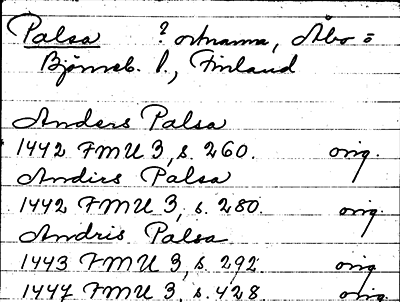 Palsa ? ortnamn, Åbo =
Björneb. l., Finland
Anders Palsa
1442 FMU 3, s. 260. orig.
Andirs Palsa
1442 FMU 3, s. 280. orig.
Andris Palsa
1443 FMU 3, s. 292 orig
1447 FMU 3, s. 428 orig